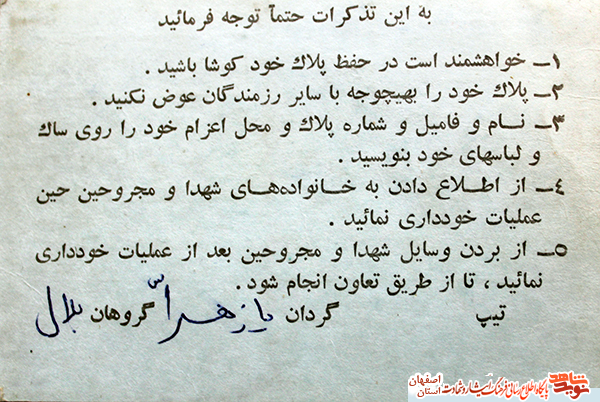 به این تذکرات حتماً توجه فرمائید
۱ــ خواهشمند است در حفظ پلاك خود كوشا باشید .
۲ــ پلاك خود را بهیچوجه با سایر رزمندگان عوض نكنید .
۳ــ نــام و فامیل و شماره پلاك و محل اعزام خود را روی ساك
و لباسهای خود بنویسید .
٤ــ از اطــلاع دادن به خــانواده‌های شهدا و مجروحین حین
عملیات خودداری نمائید .
۵ــ از بردن وسایل شهدا و مجروحین بعد از عملیات خودداری
نمائید ، تا از طریق تعاون انجام شود .
تیپ گردان یا زهرا گروهان بلال
نوید شاهد
پایگاه اطلاع رسانی فرهنگ ایثار و شهادت
استان اصفهان